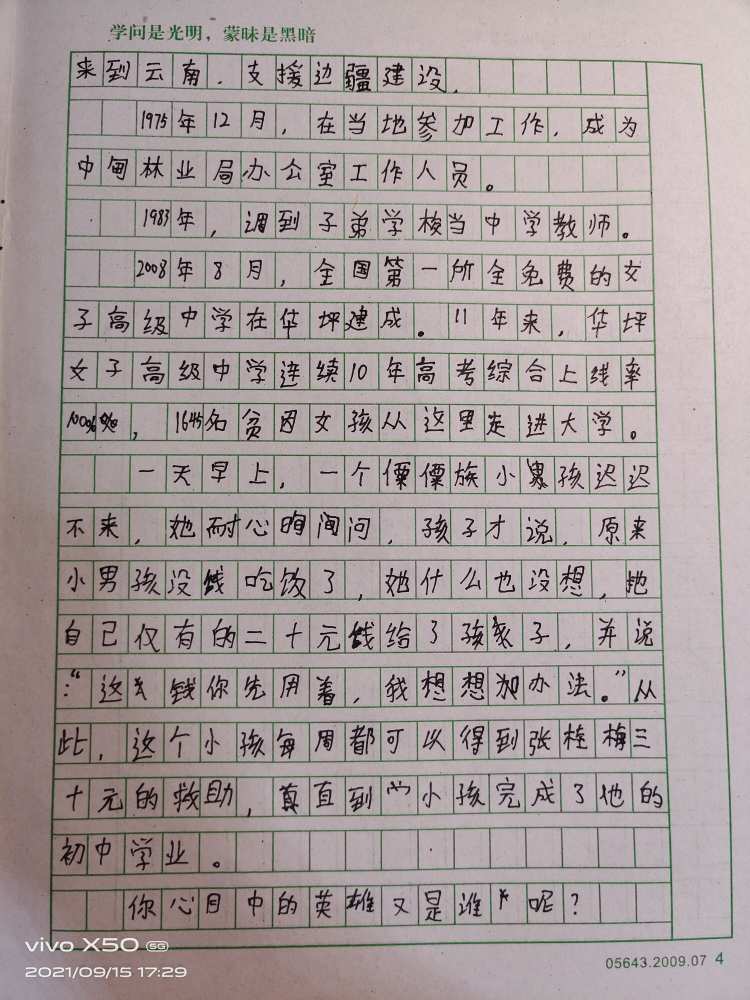 学问是光明，蒙昧是黑暗
来到云南，支援边疆建设，
1975年12月，在当地参加工作，成为
中甸林业局办公室工作人员。
1983年，调到子弟学校当中学教师。
2008年8月，全国第一所全免费的女
子高级中学在华坪建成。11年来，华坪
女子高级中学连续10年高考综合上线率
100%，1645名贫困女孩从这里走进大学。
一天早上，一个傈僳族小男孩迟迟
不来，她耐心询问，孩子才说，原来
小男孩没钱吃饭了，她什么也没想，她
自己仅有的二十元钱给了孩子，并说
：“这钱你先用着，我想想办法。”从
此，这个小孩每周都可以得到张桂梅三
十元的救助，真直到小孩完成了他的
初中学业。
你心目中的英雄又是谁呢？
vivo X50 5G
2021/09/15 17:29
05643.2009.07 4